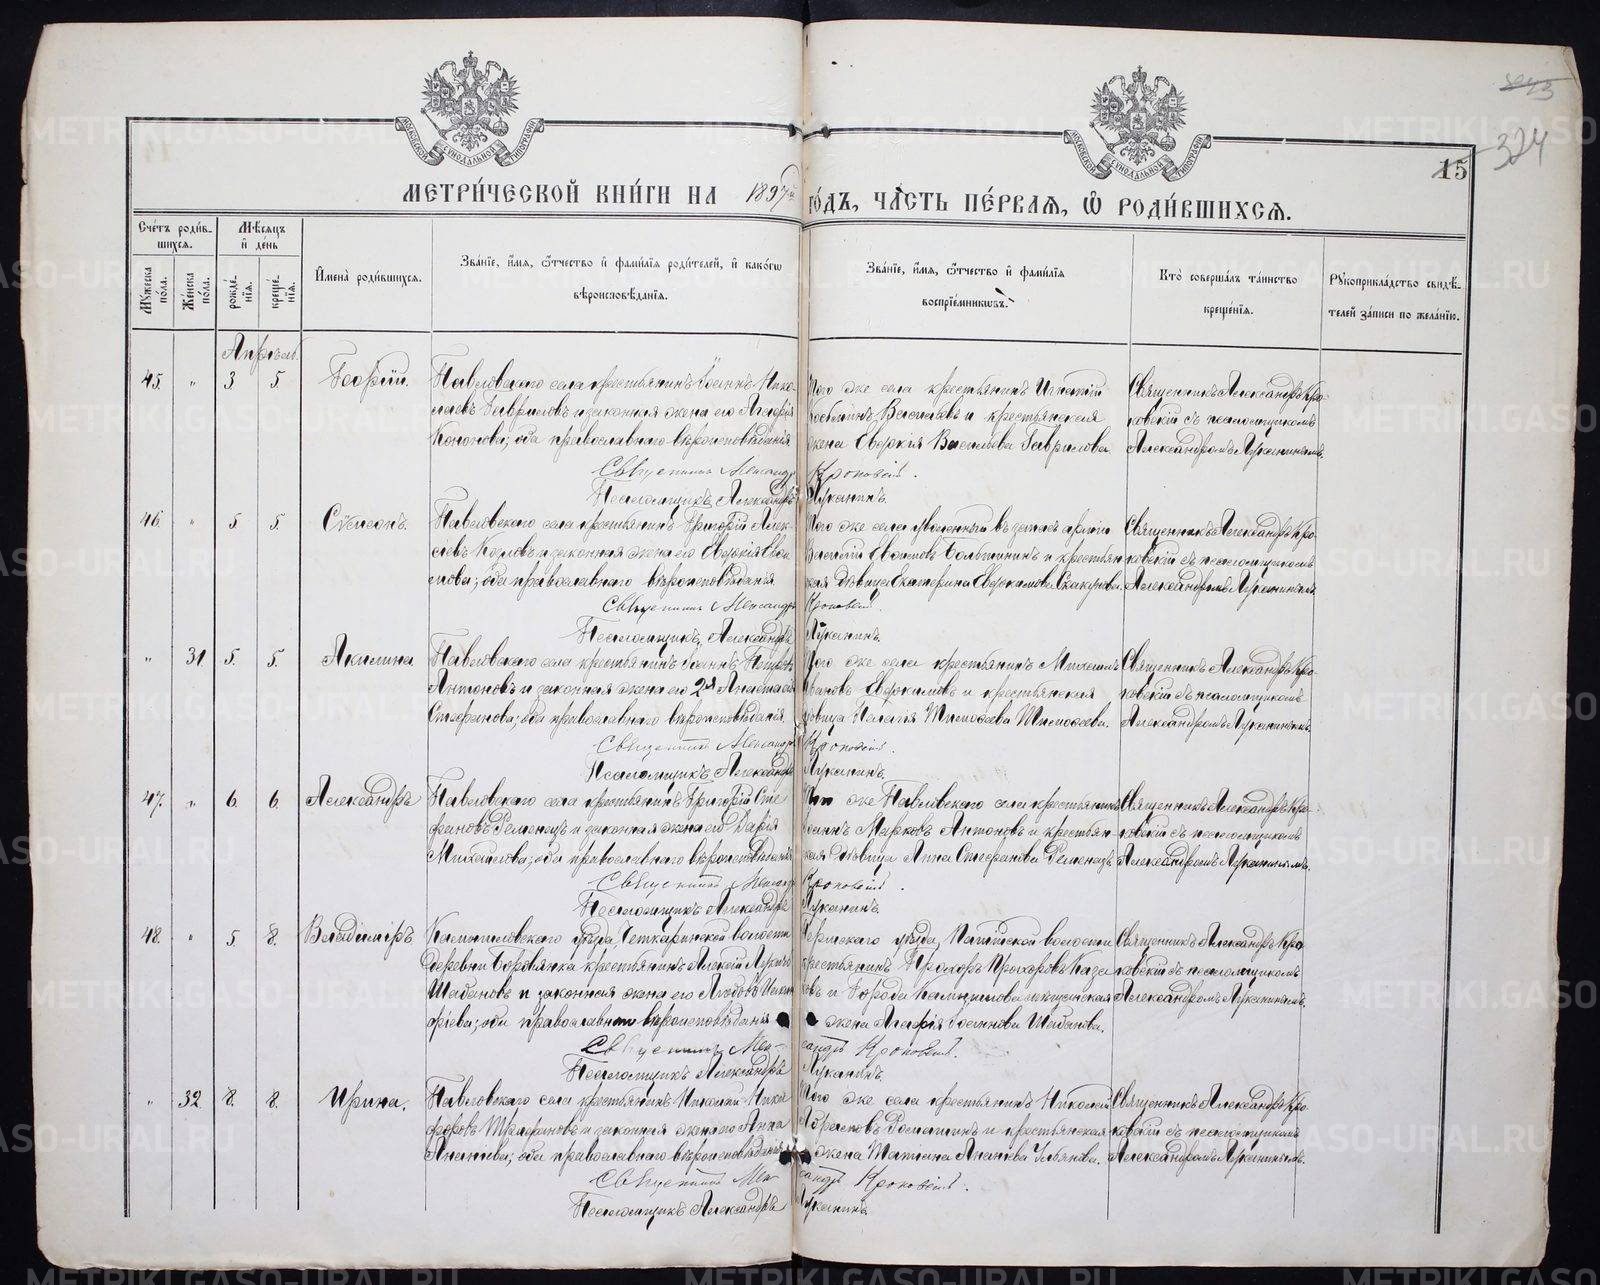 МОСКОВСКОЙ СѴНОДАЛЬНОЙ ТИПОГРАФІИ
МОСКОВСКОЙ СѴНОДАЛЬНОЙ ТИПОГРАФІИ
15
324
МЕТРИ́ЧЕСКОЙ КНИ́ГИ НА 1897й ГО́ДЪ, ЧА́СТЬ ПЕ́РВАЯ, Ѽ РОДИ́ВШИХСЯ.
Сче́тъ роди́в-
шихся.
Мꙋ́жеска по́ла.
Же́нска по́ла.
Мѣ́сяцъ и҆ де́нь
рожде́нія.
креще́нія.
И҆мена̀ роди́вшихся.
Зва́нїе, и҆́мя, ѻ҆́тчество и҆ фами́лїя роди́телей, и҆ како́гѡ
вѣроисповѣ́данїя.
Зва́нїе, и҆́мя, ѻ҆́тчество и҆ фами́лїя
воспрїе́мникѡвъ.
Кто̀ соверша́лъ та́инство
креще́нїя.
Рꙋкоприкла́дство свидѣ́-
телей за́писи по жела́нїю.
Апрѣль.
45. " 3 5 Георгій.
Павловскаго села крестьянинъ Іоаннъ Нико-
лаевъ Гавриловъ и законная жена его Агафія
Кононова; оба православнаго вѣроисповѣданія
Того же села крестьянинъ Игнатій
Васильевъ и крестьянская
жена Евдокія Васильева Гаврилова
Священникъ Александръ Кро-
ковскій съ псаломщикомъ
Александромъ Луканинымъ.
Священникъ Александръ
Псаломщикъ Александръ Луканинъ.
46. " 5 5. Сѵмеонъ.
Павловскаго села крестьянинъ Григорій Алек-
сѣевъ Козловъ и законная жена его Евдокія
оба православнаго вѣроисповѣданія
Того же села уволенный въ запасъ арміи
Василій и крестьян
ская дѣвица Екатерина
Священникъ Александръ Кро-
ковскій съ псаломщикомъ
Александромъ Луканинымъ.
Священникъ Александръ
Псаломщикъ Александръ Луканинъ.
" 31 5. 5. Акилина
Павловскаго села крестьянинъ Іоаннъ Петровъ
Антоновъ и законная жена его 2я Анастасія
Стефанова; оба православнаго вѣроисповѣданія
Того же села крестьянинъ Михаилъ
Ивановъ Евдокимовъ и крестьянская
дѣвица Пелагія Тимоѳеева Тимоѳеева.
Священникъ Александръ Кро-
ковскій съ псаломщикомъ
Александромъ Луканинымъ.
Священникъ Александръ
Псаломщикъ Александръ Луканинъ.
47. " 6. 6. Александръ
Павловскаго села крестьянинъ Григорій Сте
фановъ Ременецъ и законная жена его Дарія
Михайлова; оба православнаго вѣроисповѣданія
Того же Павловскаго села крестьянинъ
Іоаннъ Марковъ Антоновъ и крестьян-
ская дѣвица Анна Стефанова Ременецъ
Священникъ Александръ Кро-
ковскій съ псаломщикомъ
Александромъ Луканинымъ.
Священникъ Александръ
Псаломщикъ Александръ Луканинъ.
48. " 5. 8. Владиміръ
Камышловскаго уѣзда, Четкаринской волости
деревни Боровлянка крестьянинъ Алексій Лукинъ
Шабановъ и законная жена его Любовь
оба православнаго вѣроисповѣданія
Пермскаго уѣзда, волости
крестьянинъ Прохоръ Прохоровъ Каза
ковъ и города Камышлова мѣщанская
жена Агафія Іоаннова Шабанова.
Священникъ Александръ Кро
ковскій съ псаломщикомъ
Александромъ Луканинымъ.
Священникъ Александръ
Псаломщикъ Александръ Луканинъ.
" 32 8. 8. Ирина.
Павловскаго села крестьянинъ Николай Ники
форовъ Трифоновъ и законная жена его Анна
Ананіева; оба православнаго вѣроисповѣданія
Того же села крестьянинъ Николай
и крестьянская
жена Татіана Ананіева Ульянова.
Священникъ Александръ Кро-
ковскій съ псаломщикомъ
Александромъ Луканинымъ.
Священникъ Александръ
Псаломщикъ Александръ Луканинъ.
METRIKI.GASO-URAL.RU